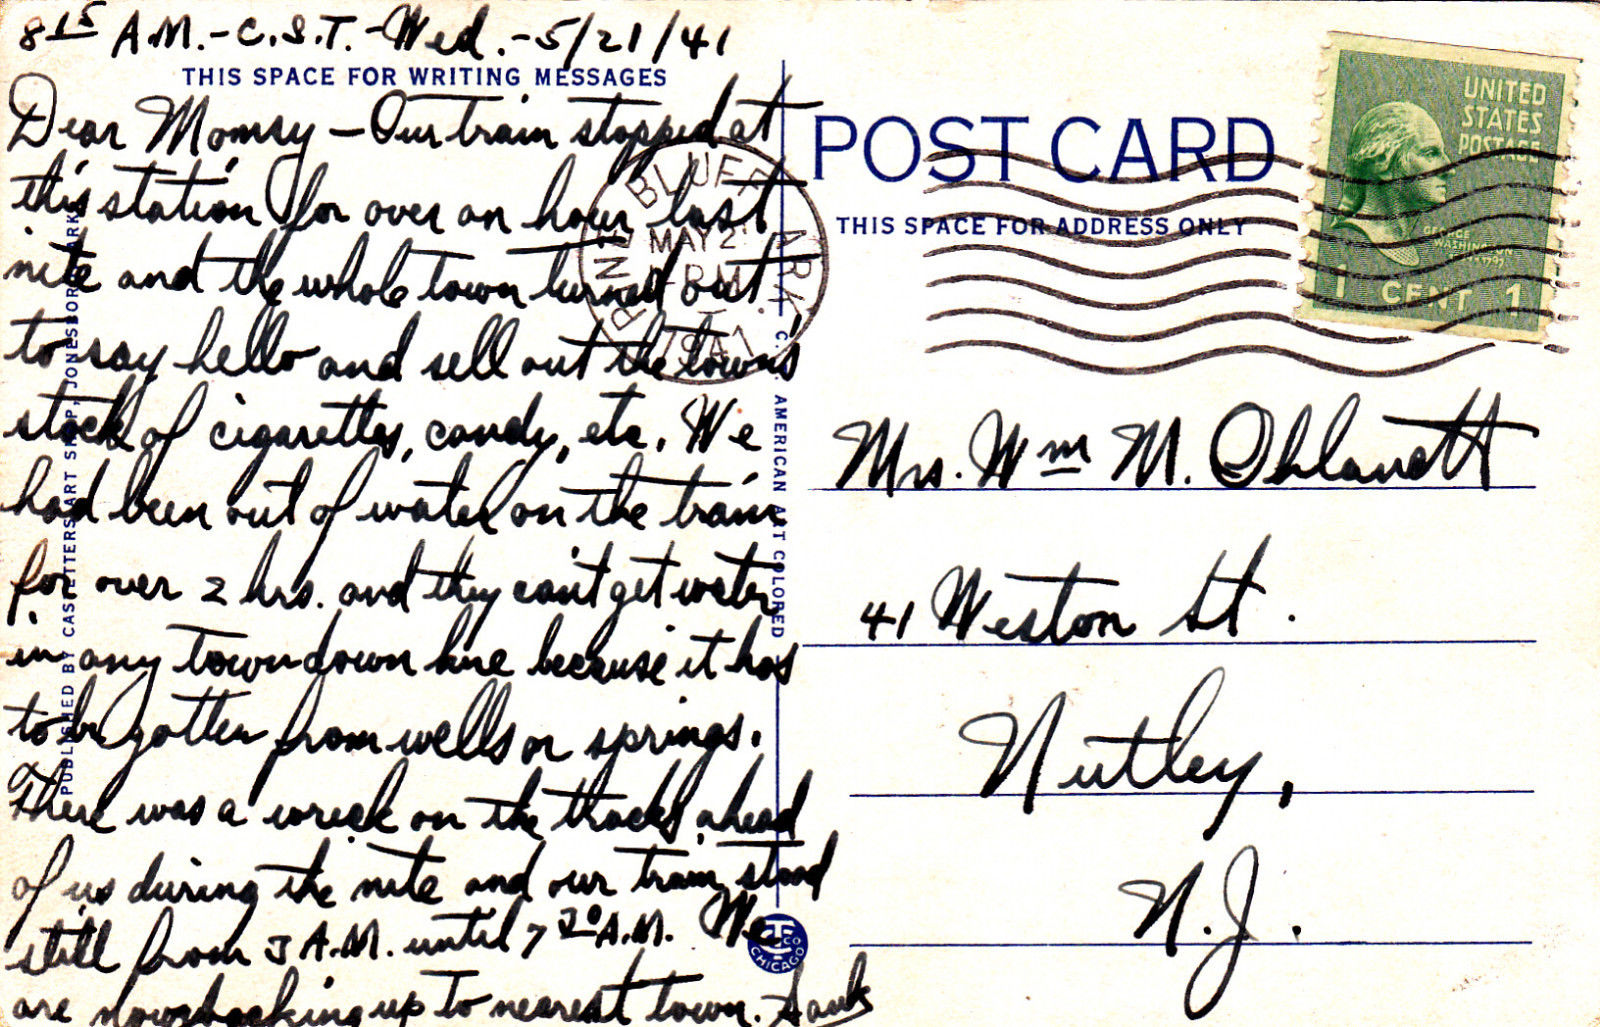 8 15 A.M. - C.S.T. - Wed. - 5/21/41
THIS SPACE FOR WRITING MESSAGES
Dear Momsy — Our train stopped at
this station for over an hour last
nite and the whole town turned out
to say hello and sell out the towns
stock of cigarettes, candy, etc. We
had been out of water on the train
for over 2 hrs. and they can't get water
in any town down here because it has
to be gotten from wells or springs.
There was a wreck on the tracks ahead
of us during the nite and our train stood
still from 3 A.M. until 7 30 A.M. We
are now backing up to nearest town.
PUBLISHED BY CASHETTERS ART SHOP, JONESBORO, ARK.
C.T. AMERICAN ART COLORED
CTCO
CHICAGO
POST CARD
THIS SPACE FOR ADDRESS ONLY
PINE BLUFF ARK.
MAY 21
PM
1941
UNITED
STATES
POSTAGE
GEORGE
WASHINGTON
1 CENT 1
Mrs. Wm M. Ohlandt
41 Weston St.
Nutley,
N.J.